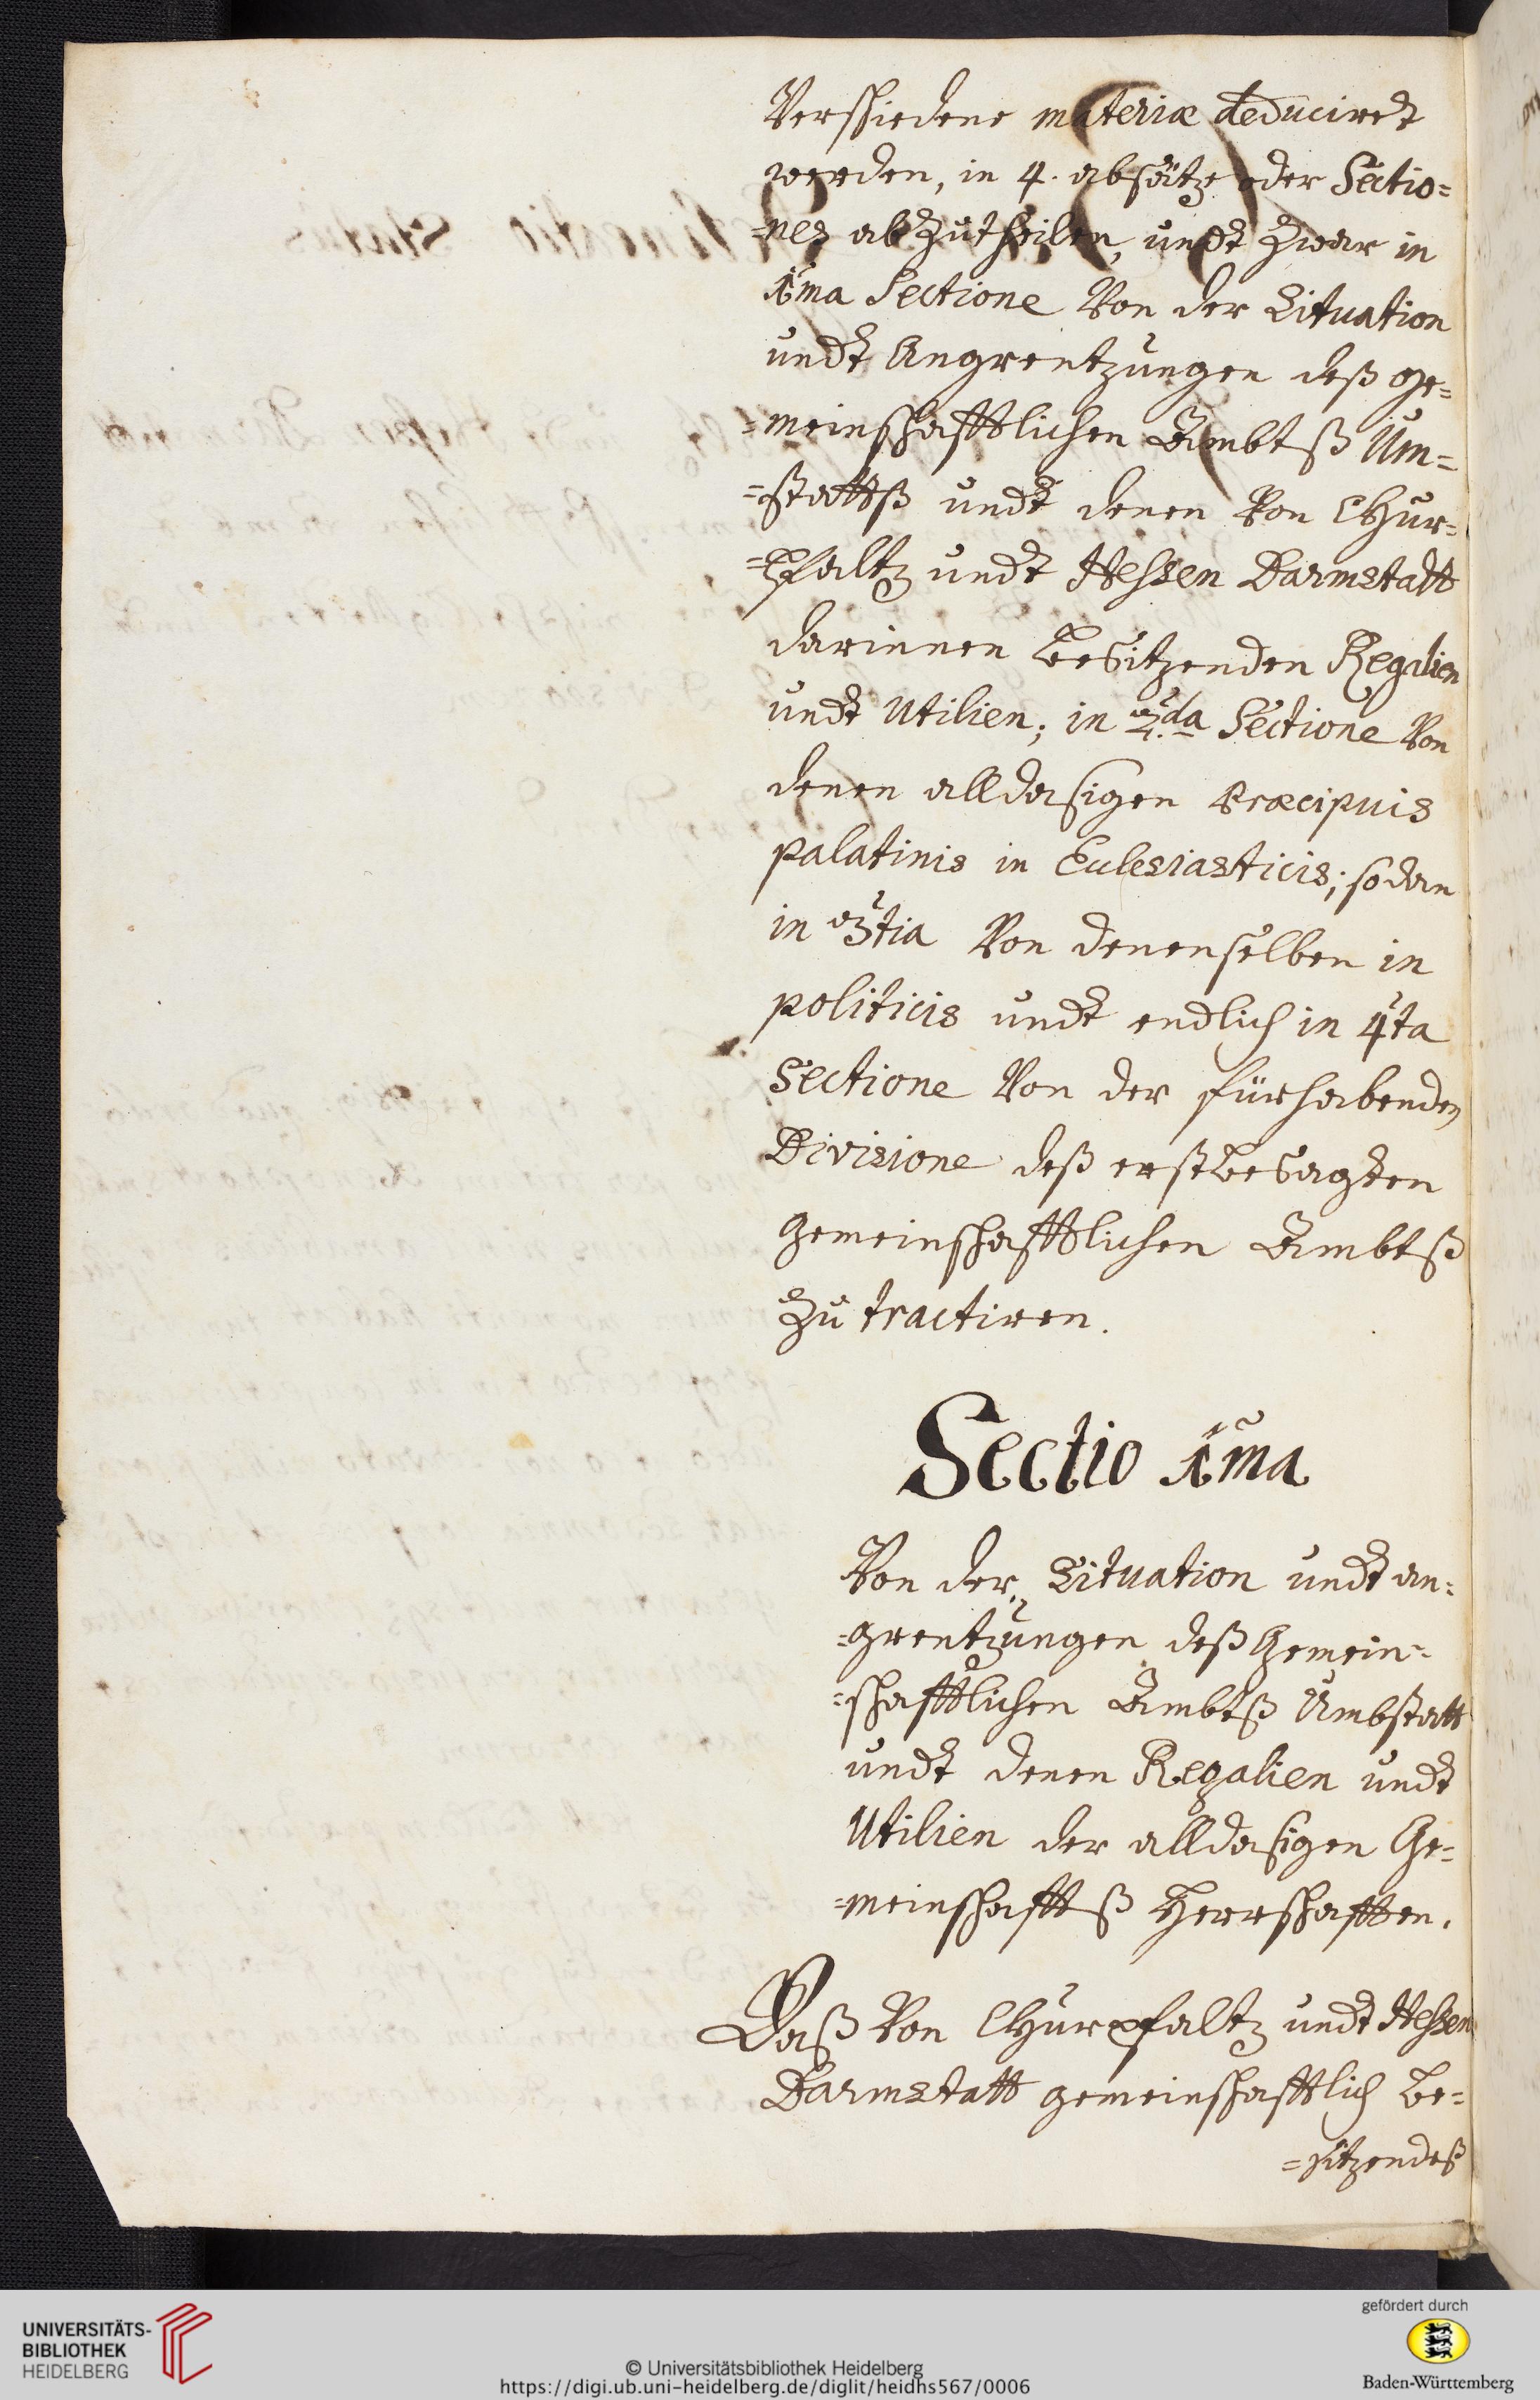 Verschiedene materiæ deduciret
werden, in 4. absätze oder Sectio=
=nes abzutheilen, undt zwar in
1ma Sectione Von der Situation
undt Angrentzungen deß ge=
=meinschafftlichen Ambtß Um=
=stattß undt denen Von CHur=
=Pfaltz undt Hessen Darmstatt
darinnen besitzenden Regalien
undt Utilien; in 2.da Sectione Von
denen alldasigen Præcipuis
palatinis in Eccleziasticis; sodan
in 3tia Von denenselben in
politicis undt endlich in 4ta
Sectione Von der fürhabenden
Divisione deß erstbesagten
gemeinschafftlichen Ambtß
zu tractiren.
Sectio 1ma
Von der Situation undt an=
=grentzungen deß Gemein=
=schafftlichen Ambtß Umbstatt
undt denen Regalien undt
Utilien der alldasigen Ge=
=meinschafftß Herrschafften.
Daß Von CHurpfaltz undt Hessen
Darmstatt gemeinschafftlich be=
=sitzendeß
UNIVERSITÄTS-
BIBLIOTHEK
HEIDELBERG
© Universitätsbibliothek Heidelberg
https://digi.ub.uni-heidelberg.de/diglit/heidhs567/0006
gefördert durch
Baden-Württemberg